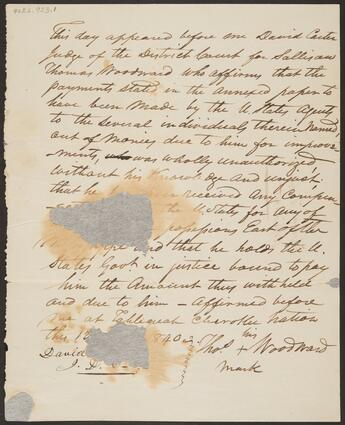 4026.923.1
This day appeared before me David Carter
Judge of the District Court for Sallisaw
Thomas Woodward who affirms that the
payments stated in the annexed paper to
have been made by the U. States Agents
to the several individuals therein named,
out of monies due to him for improve
-ments, was wholly unauthorized
without his knowledge and unjust,
that he received any compen-
the U. States for any of
possessions East of the
and that he holds the U.
States Govt in justice bound to pay
him the amount they withheld
and due to him – Affirmed before
me at Tahlequah Cherokee Nation
this 840
David Thos his + Woodward
J. D. mark